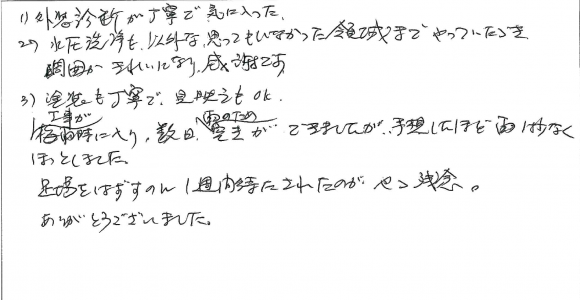 1) 外装診断が丁寧で気に入った。
2) 水圧洗浄も、以外な、思ってもいなかった領域までやっていただき
周囲がきれいになり、感謝です。
3) 塗装も丁寧で、見映えもOK.
工事が 雨のため
梅雨時に入り、数日、空きができましたが、予想したほど雨は少なく
ほっとしました。
足場をはずすのに1週間待たされたのがやゝ残念。
ありがとうございました。